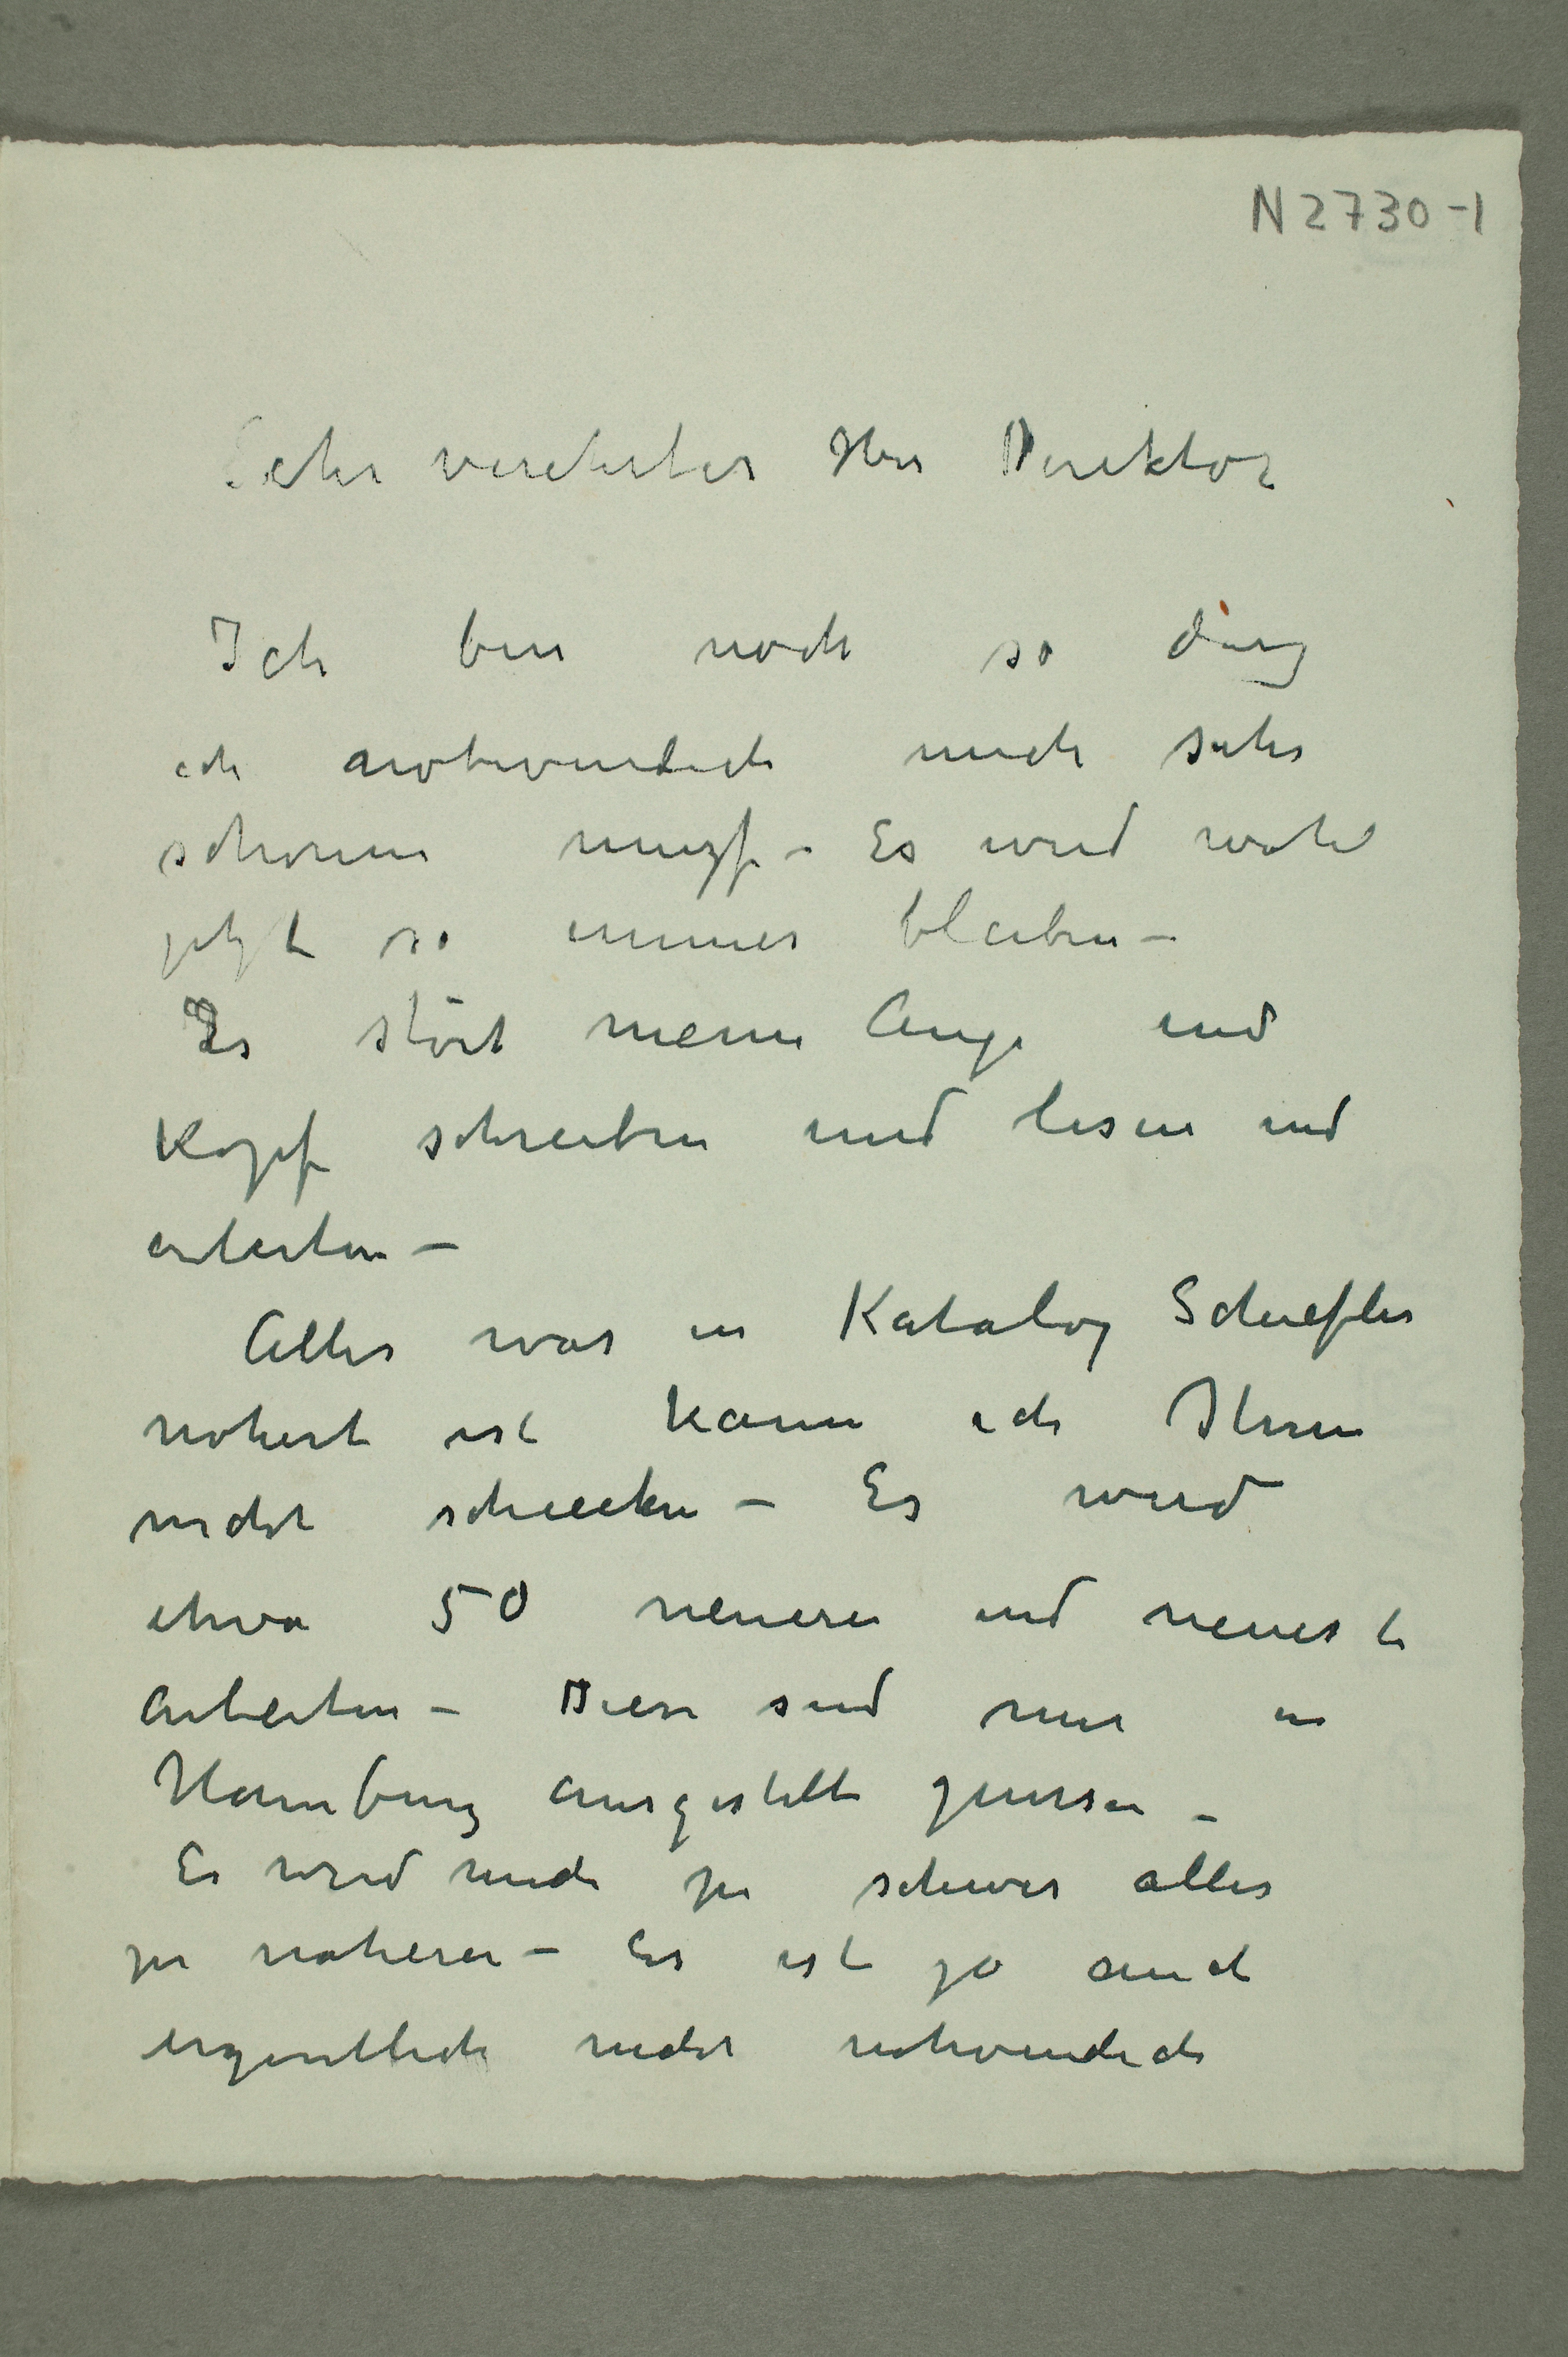 N 2730-1
Sehr verehrter Herr Direktor
Ich bin noch so
ich notwendich mich sehr
schonen muszs – Es wird wohl
jetzt so immer bleiben –
Es stört meine Auge und
Kopf schreiben und lesen und
arbeiten –
Alles was in Katalog Schiefler
notiert ist kann ich Ihnen
nicht schicken – Es wird
etwa 50 neuere und neueste
Arbeiten – Diese sind nur in
Hamburg ausgestellt –
Es wird mich zu schwer alles
zu notieren – Es ist ja auch
eigentlich nicht notwendich